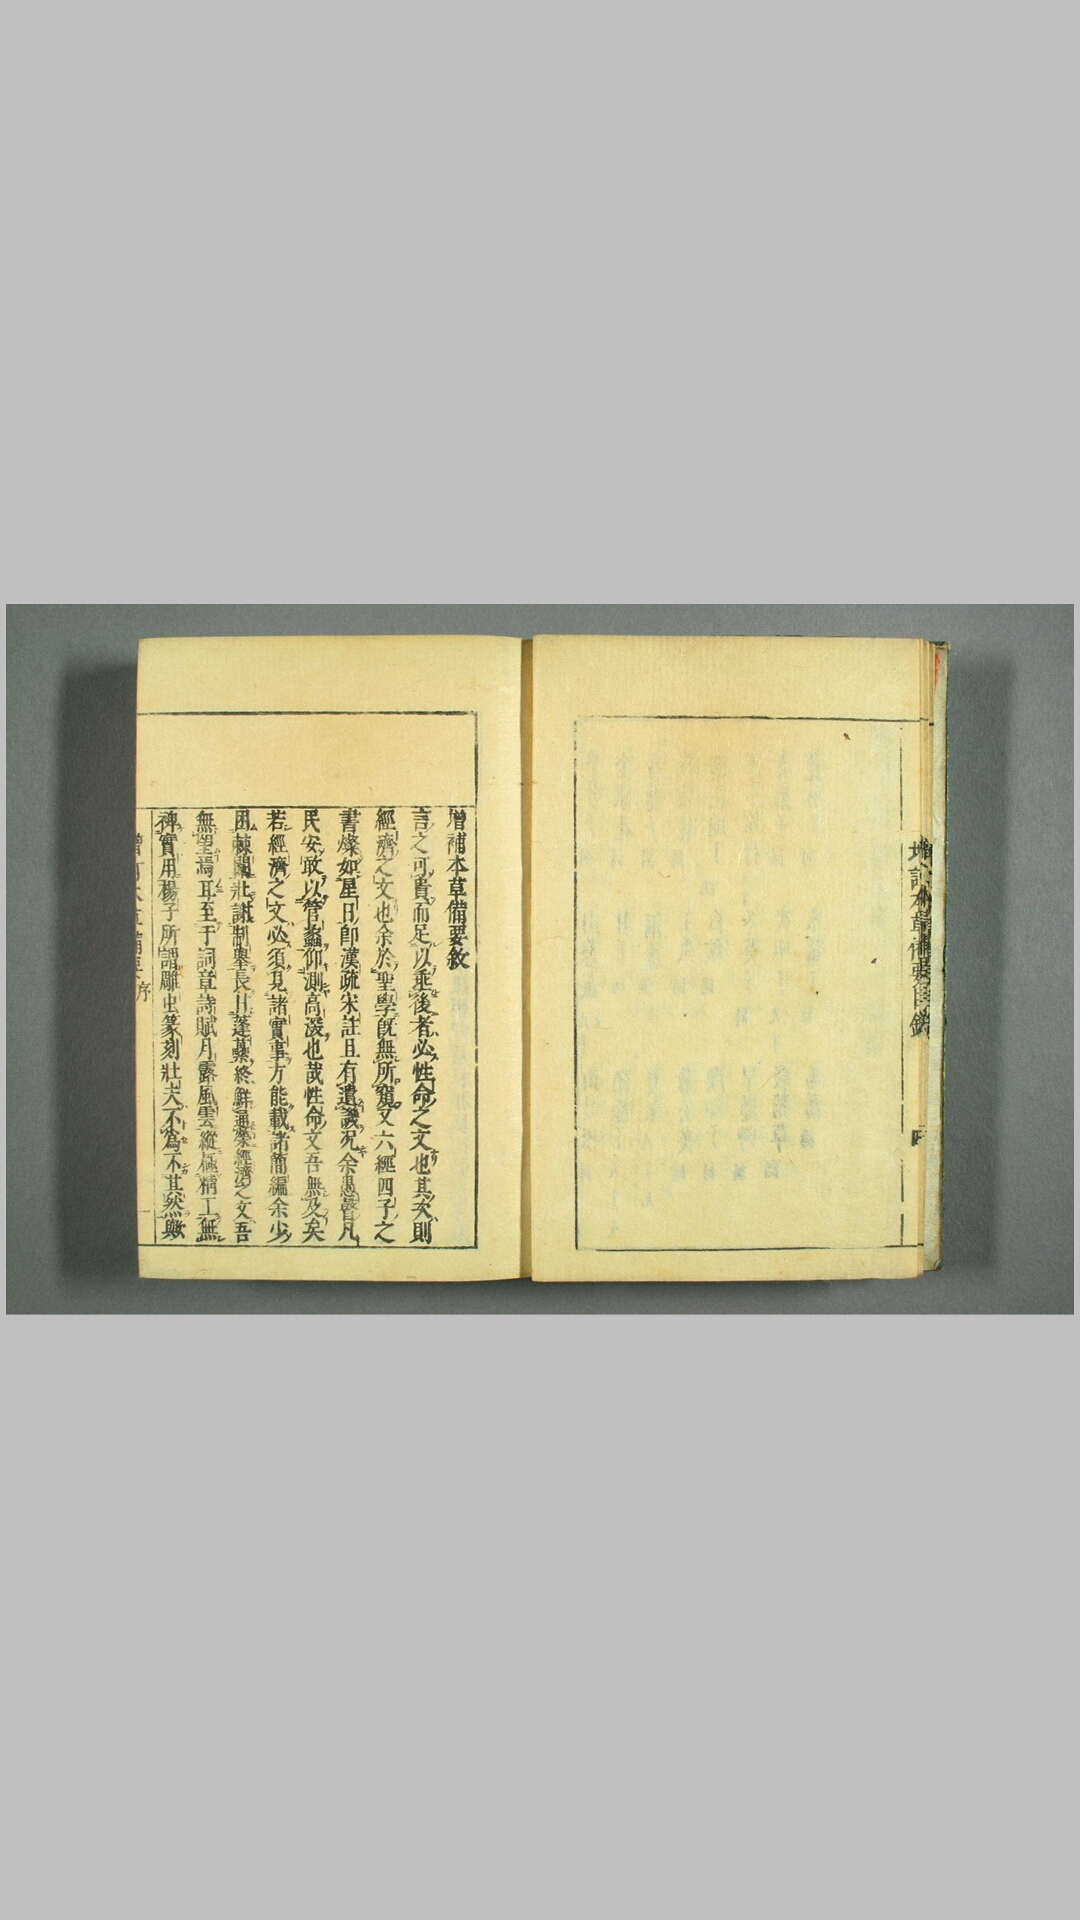 增訂本草備要目錄
增補本草備要敘
言之可貴而足以垂後者必性命之文也其次則
經濟之文也余於聖學既無所窺又六經四子之
書燦如星日卽漢疏宋註且有遺譏況余愚瞽凡
民安敢以管蠡仰測高深也哉性命文吾無及矣
若經濟之文必須見諸實事方能載諸簡編余少
困棘闈壯謝制舉長甘蓬藟終鮮通榮經濟之文吾
無望焉耳至于詞章詩賦月露風雲縱極精工無
裨實用楊子所謂雕虫篆刻壯夫不為不其然與
序